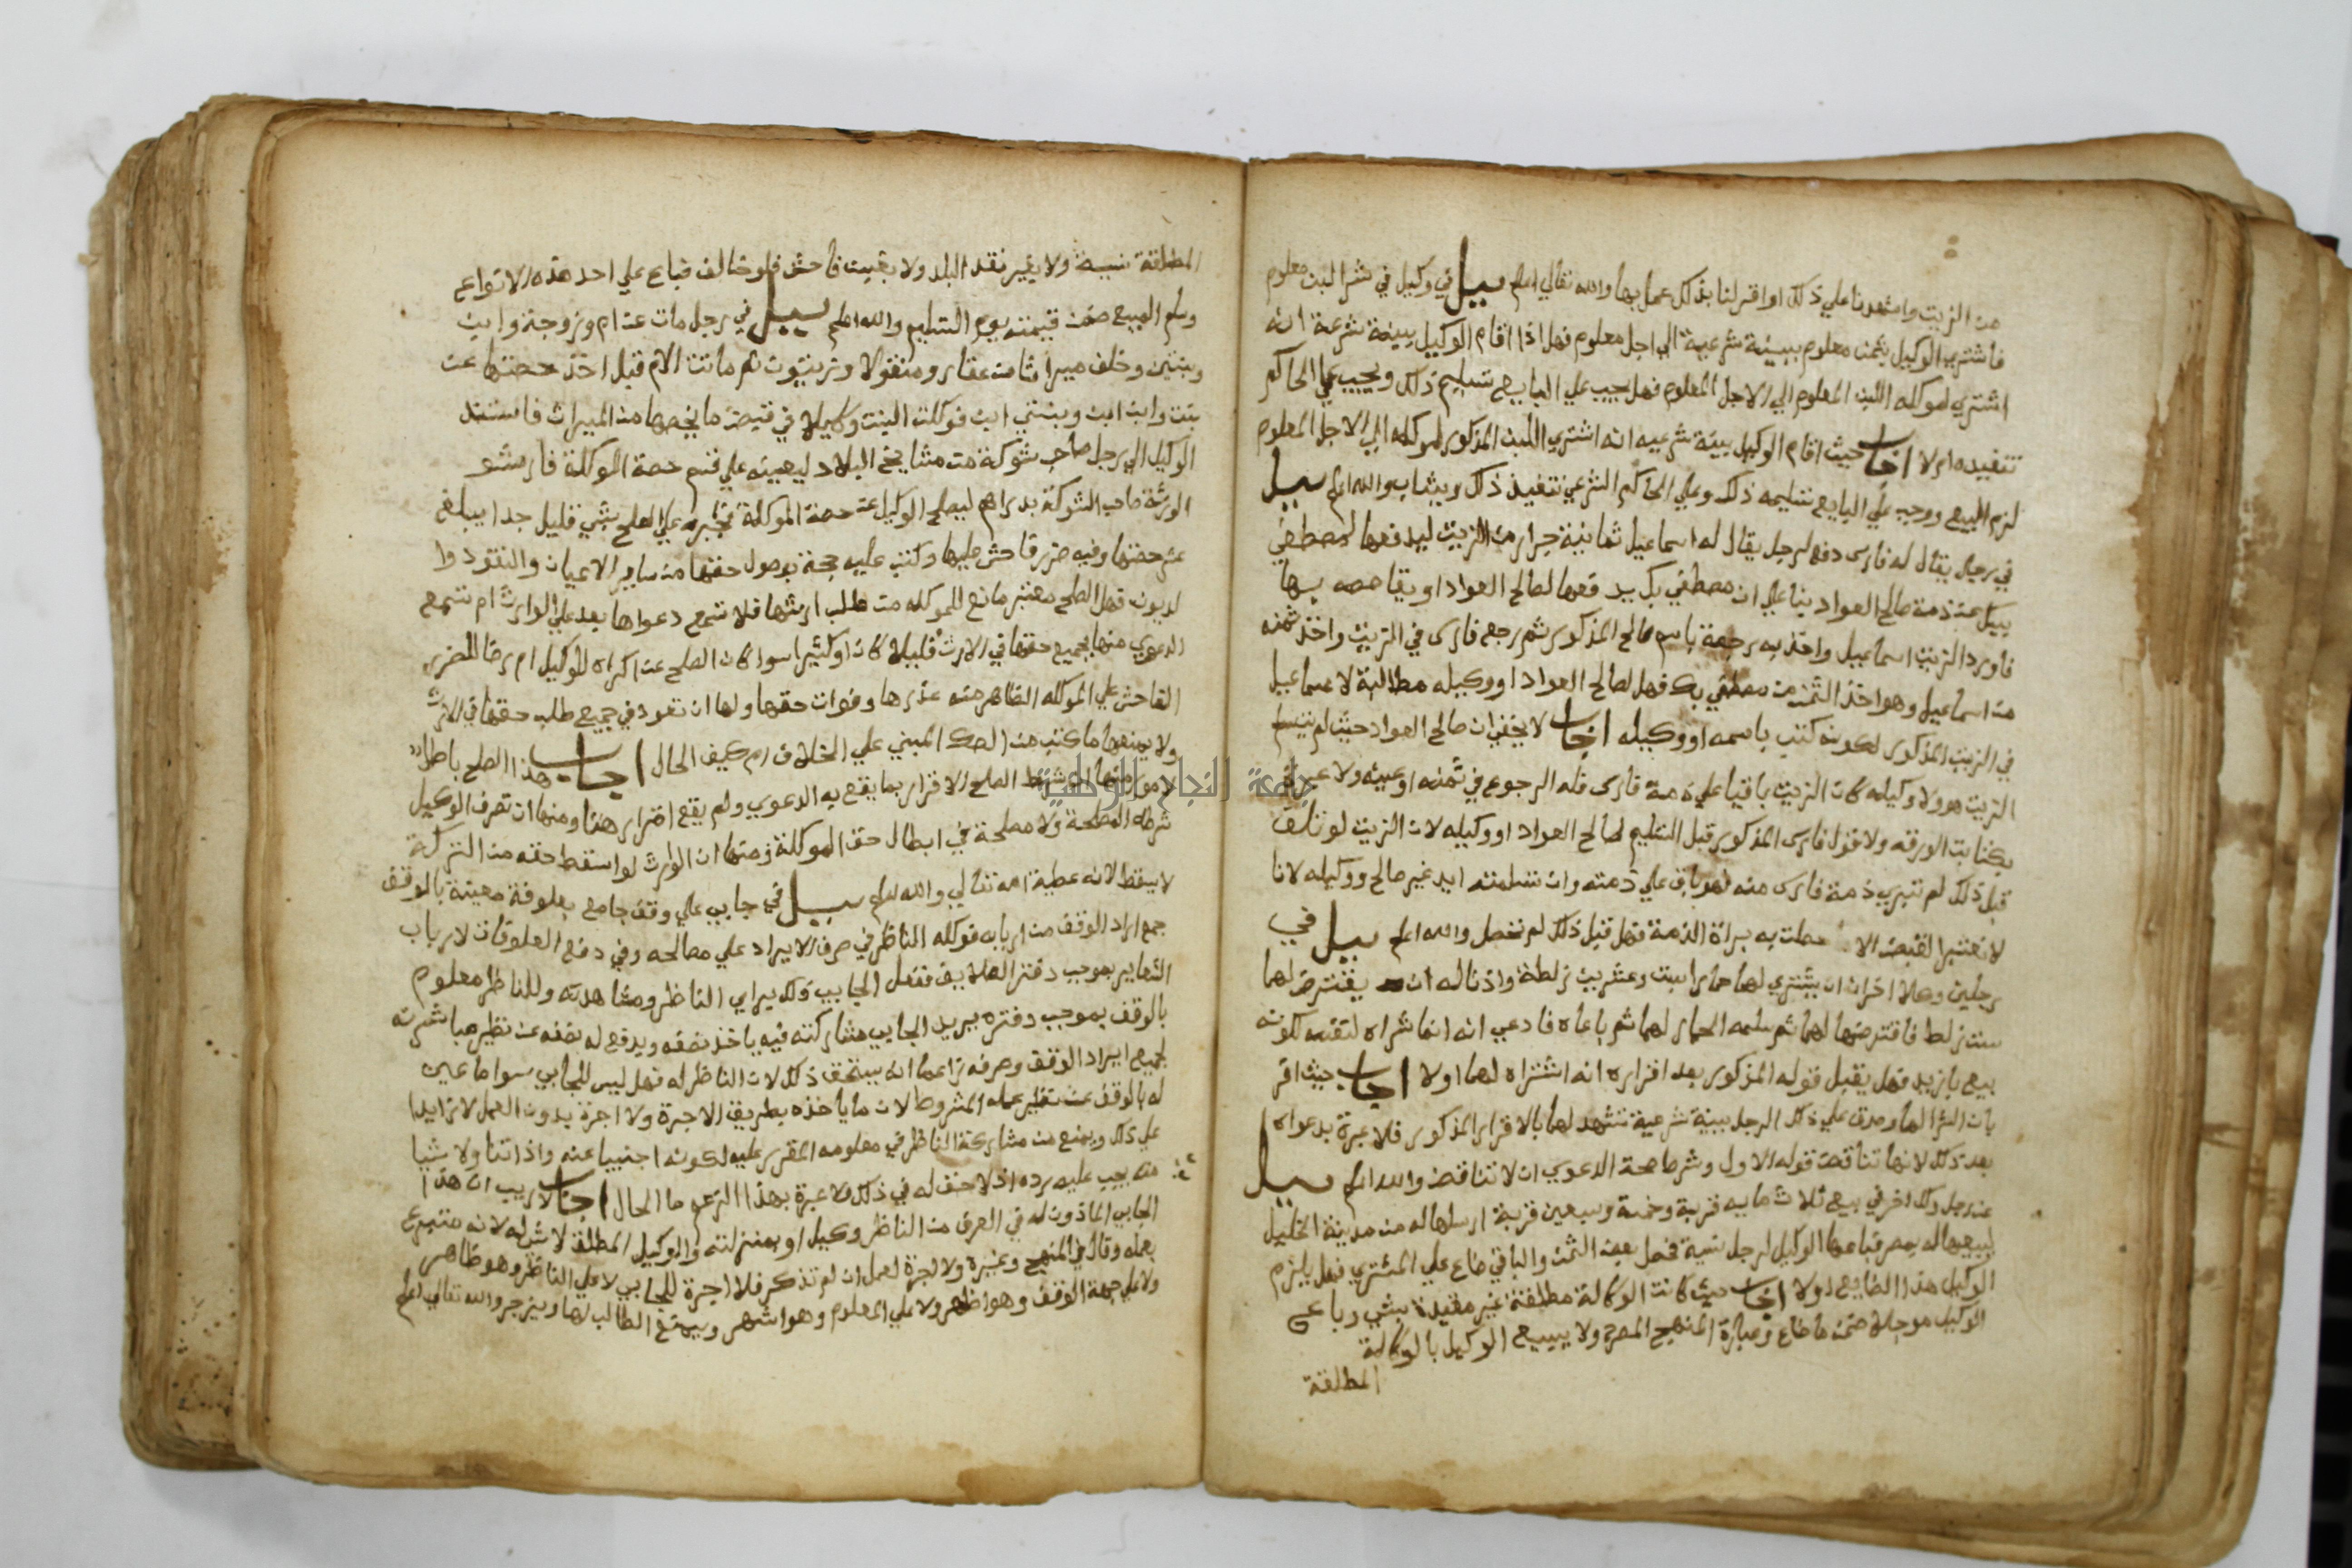 من الزيت واشهدنا علي ذلك او اقر لنا بذلك عمل بها والله تعالي اعلم سيل في وكيل في شرا لبن معلوم
فاشتري الوكيل بثمن معلوم ببينة شرعية الي اجل معلوم فهل اذا اقام الوكيل بينة شرعية انه
اشتري لموكله اللبن المعلوم الي الاجل المعلوم فهل يجب علي البايع تسليم ذلك ويجب علي الحاكم
تنفيذه ام لا اجاب حيث اقام الوكيل بينة شرعيه انه اشتري اللبن المذكور لموكله الي الاجل المعلوم
لزم البيع ووجب علي البايع تسليمه ذلك وعلي الحاكم الشرعي تنفيذ ذلك ويثاب والله اعلم سيل
في رجل يقال له فارس دفع لرجل يقال له اسماعيل ثمانية جرار من الزيت ليدفعها لمصطفي
بيك عن ذمة صالح العواد بنا علي ان مصطفي بك يدفعها لصالح العواد او يقاصصه بها
فاورد الزيت اسماعيل واخذ به رجعة باسم صالح المذكور ثم رجع فارس في الزيت واخذ ثمنه
من اسماعيل وهو اخذ الثمن من مصطفي بك فهل لصالح العواد او وكيله مطالبة لاسماعيل
في الزيت المذكور لكونه كتب باسمه او وكيله اجاب لا يخفي ان صالح العواد حيث لم يتسلم
الزيت هو ولا وكيله كان الزيت باقيا علي ذمة فارس فله الرجوع في ثمنه او عينه ولا عبرة
بكتابت الورقه ولا قول فارس المذكور قبل التسليم لصالح العواد او وكيله لان الزيت لو تلف
قبل ذلك لم تبري ذمة فارس منه فهو باق علي ذمته وان تسلمته ايد غير صالح ووكيله لانا
لا نعتبر القبض الا حصلت به براة الذمة فهل قبل ذلك لم تحصل والله اعلم سيل في
رجلين وكلا اخر ان يشتري لهما حمارا بست وعشرين زلطة واذنا له ان يقترض لهما
ست زلط فاقترضها لهما ثم سلمه الحمار لهما ثم باعاه فادعي انه انما شراه لنفسه لكونه
بيع بازيد فهل يقبل قوله المذكور بعد اقراره انه اشتراه لهما اولا اجاب حيث اقر
بان الشرا لهما وصدق علي ذلك الرجل بينة شرعية تشهد لهما بالاقرار المذكور فلا عبرة بدعواه
بعد ذلك لانها تناقض قوله الاول وشرط صحة الدعوي ان لا تناقض والله اعلم سيل
عن رجل وكل اخر في بيع ثلاث مايه قربة وخمسة وسبعين قربة ارسلها له من مدينة الخليل
ليبيعها له بمصر فباعها الوكيل لرجل نسية فحصل بعض الثمن والباقي ضاع علي المشتري فهل يلزم
الوكيل هذا الضايع اولا اجاب حيث كانت الوكالة مطلقة غير مقيدة بشي وباع
الوكيل موجلا ضمن ما ضاع وعبارة المنهج المصرح ولا يبيع الوكيل بالوكالة
المطلقة
المطلقة نسية ولا بغير نقد البلد ولا بغبن فاحش فلو خالف فباع علي احد هذه الانواع
وسلم المبيع ضمن قيمته يوم التسليم والله اعلم سيل في رجل مات عن ام وزوجة وابن
وبنتين وخلف ميراثا من عقار ومنقولا وتربتيون ثم ماتت الام قبل اخذ حصتها عن
بنت وابن ابن وبنتي ابن فوكلت البنت وكيلا في قبض ما يخصها من الميراث فاستند
الوكيل الي رجل صاحب شوكة من مشايخ البلاد ليعينه علي قسم حصة الموكلة فارشو
الورثة صاحب الشوكة بدراهم ليصلح الوكيل عن حصة الموكلة فجبره علي الصلح بشي قليل جدا يبلغ
عشر حصتها وفيه ضرر فاحش عليها وكتب عليه حجة بوصول حقها من ساير الاعيان والنقود وا
لديون فهل الصلح معتبر مانع للموكله من طلب ارثها فلا تسمع دعواها بعد علي الوارث ام تسمع
الدعوي منها بجميع حقها في الارث قليلا كان او كثيرا سوا كان الصلح عن اكراه للوكيل ام رضا للضرر
الفاحش علي الموكله الظاهر منه عذرها وفوات حقها ولها ان تعود في جميع طلب حقها في الارث
ولا يمنعها ما كتب من الصك المبني علي الخلاف ام كيف الحال اجاب هذا الصلح باطل
لامور منها ان شرط الصلح الاقرار بما يقع به الدعوي ولم يقع اقرار هنا ومنها ان تصرف الوكيل
شرطه المصلحة ولا مصلحة في ابطال حق الموكلة ومنها ان الوارث لو اسقط حقه من التركة
لا يسقط لانه عطية الله تعالي والله اعلم سيل في جابي علي وقف جامع بعلوفة معينة بالوقف
جمع ايراد الوقف من اربابه فوكله الناظر في صرف الايراد علي مصالحه وفي دفع العلوفات لارباب
الشعاير بموجب دفتر العلايف ففعل الجابي ذلك براي الناظر ومشاهدته وللناظر معلوم
بالوقف بموجب دفتره يريد الجابي مشاركته فيه ياخذ نصفه ويدفع له نصفه عن نظير مباشرته
لجميع ايراد الوقف وصرفه زاعما انه يستحق ذلك لان الناظر له فهل ليس للجابي سوا ما عين
له بالوقف عن نظير عمله المشروط لان ما ياخذه بطريق الاجرة ولا اجرة بدون العمل لا زايدا
علي ذلك ويمنع من مشاركة الناظر في معلومه المقرر عليه لكونه اجنبيا عنه واذا تناول شيا
منه يجب عليه رده اذ لا حق له في ذلك ولا عبرة بهذا الزعم ما الحال اجاب لا ريب ان هذا
الجابي الماذون له في الصرف من الناظر وكيل او بمنزلته والوكيل المطلق لا شي له لانه متبرع
بعمله وقال في المنهج وغيره ولا اجرة لعمل ان لم تذكر فلا اجرة للجابي لا علي الناظر وهو ظاهر
ولا علي جهة الوقف وهو اظهر ولا علي المعلوم وهو اشهر ويمنع الطالب لها وينزجر والله تعالي اعلم
جامعة النجاح الوطنية